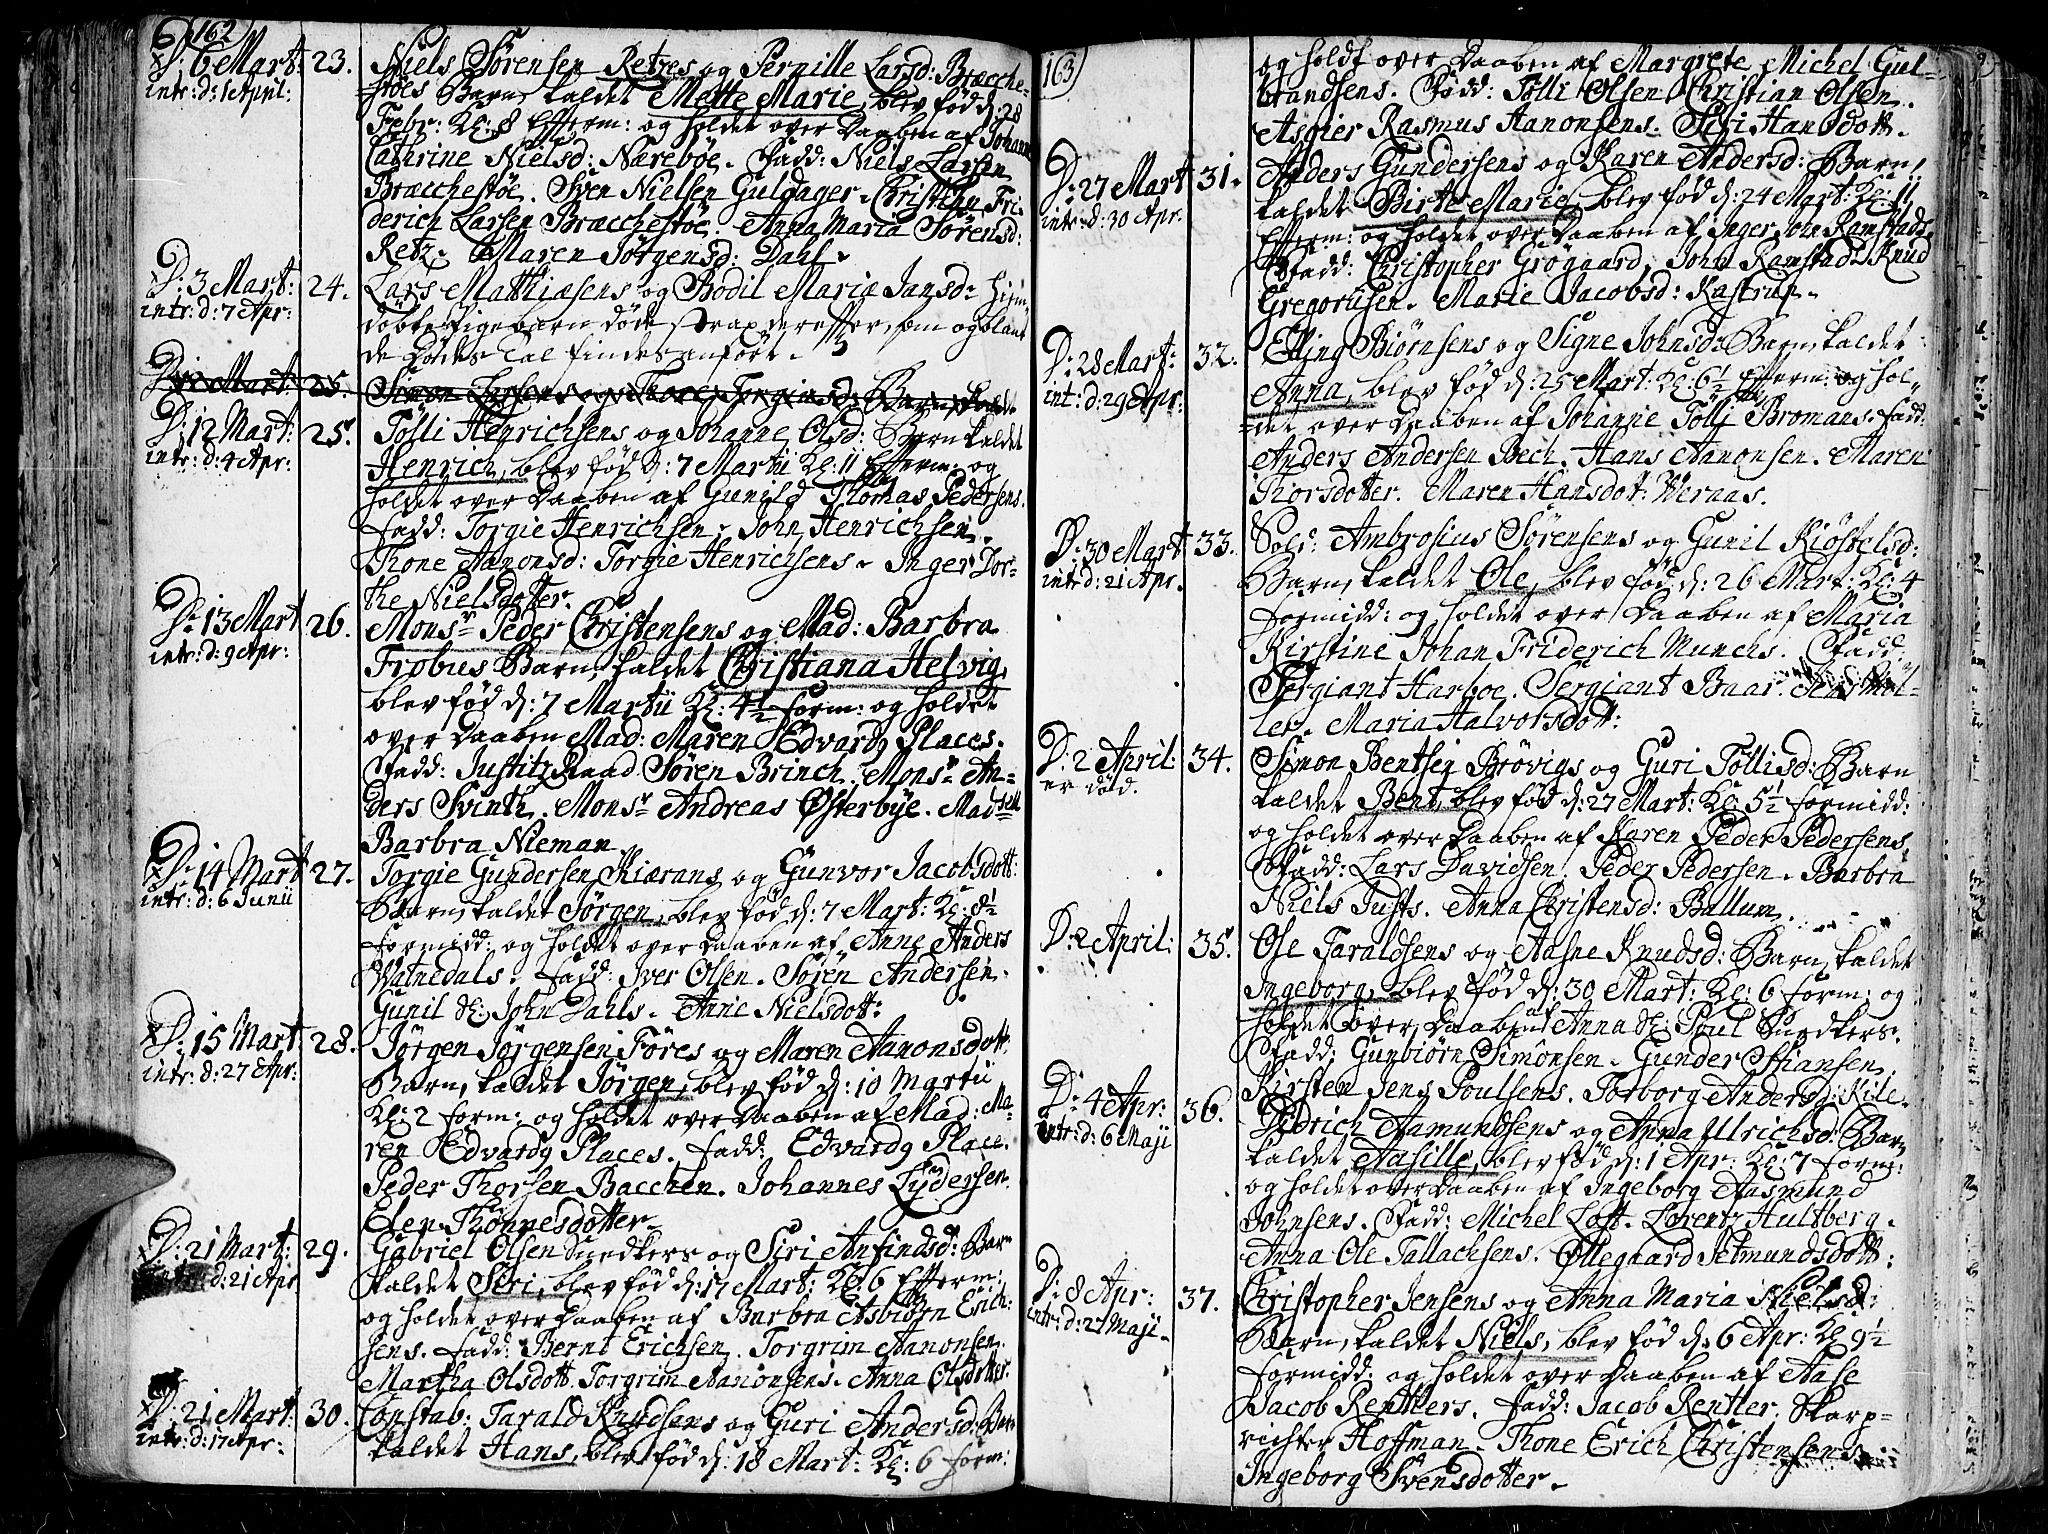 162
D: 6 Mart: 23. Niels Sörensen Retzes og Pernille Larsd: Bracche-
intr: d: 1 April: støes Barn, kaldet Mette Marie, blev född d: 28
Febr: Kl: 8 Efterm: og holdet over Daaben af Johanne
Cathrine Nielsd: Nærebøe. Fadd: Niels Larsen
Bracchestøe. Sven Nielsen Guldager. Christen Fri-
derich Larsen Bracchestøe. Anna Maria Sørensd:
Retz. Maren Jørgensd: Dahl.
D: 3 Mart: 24. Lars Mathiæsens og Bodil Marie Jansd:
intr: d: 7 Apr: döbte Pigebarn döde strax derefter, som og blant
de Dödes Tal findes anfört.
Mart: 25. Simon og Thore Torgiusd: Barn, kalde
D: 12 Mart: 25. Tölli Henrichsens og Johanne Olsd: Barn kaldet
intr: d: 4 Apr: Henrich, blev fød d: 7 Martii Kl: 11 Efterm: og
holdet over Daaben af Gunild Thomas Pedersens.
Fadd: Torgie Henrichsen. John Henrichsen.
Thone Aanonsd: Torgie Henrichsens. Inger Dor-
the Nielsdotter.
D: 13 Mart 26. Monsr Peder Christensens og Mad: Barbra
intr: d: 9 Apr: Frobus Barn, kaldet Christiana Helvig,
blev fød d: 7 Martii Kl: 4½ form: og holdet
over Daaben Mad: Maren Edvardy Places.
Fadd: Justitz Raad Sören Brinch. Monsr An-
ders Svinth. Monsr Andreas Østerbye. Madsell
Barbra Nieman.
D: 14 Mart 27. Torgie Gundersen Kiærans og Gunvor Jacobsdott:
intr: d: 6 Junii Barn, kaldet Jørgen, blev fød d: 7 Mart: Kl: 8½
formidd: og holdet over Daaben af Anne Anders
Vatnedals. Fadd: Iver Olsen. Sören Andersen.
Gunil Sl: John Dahls. Anne Nielsdott:
D: 15 Mart 28. Jörgen Jörgensen Föres og Maren Aanonsdott:
intr: d: 27 Apr: Barn, kaldet Jørgen, blev fød d: 10 Martii
Kl: 2 form: og holdet over Daaben af Mad: Ma-
ren Edvardy Places. Fadd: Edvardy Place.
Peder Thorsen Bacchen. Johannes Tydersen.
Elen Thönnesdotter.
D: 21 Mart: 29. Gabriel Olsen Snedkers og Siri Anfindsd: Barn
intr: d: 21 Apr kaldet Seri, blev fød d: 17 Mart: Kl: 6 Efterm:
og holdet over Daaben af Barbra Asbiörn Erich-
sens. Fadd: Bernt Erichsen. Torgrim Aanonsen.
Martha Olsdott. Torgrim Aanonsens. Anna Olsdotter.
D: 21 Mart: 30. Constab: Tarald Knudsens og Guri Andersd: Barn
intr: d: 17 Apr: kaldet Hans, blev fød d: 18 Mart: Kl: 6 form:
163
og holdt over Daaben af Margrete Michel Gul-
brandsens. Fadd: Tölli Olsen. Christian Olsen.
Asgier Rasmus Aanonsens. Siri Hansdott.
D: 27 Mart 31. Anders Gundersens og Karen Andersd: Barn,
intr: d: 30 Apr: kaldet Birte Marie, blev fød d: 24 Mart: Kl: 11
Efterm: og holdet over Daaben af Inger Jons Ramstads.
Fadd: Christopher Grögaard, John Ramstad Knud
Gregoriisen. Marie Jacobsd: Kastrup.
D: 28 Mart: 32. Elling Biörnsens og Signe Johnsd: Barn, kaldet
int: d: 29 Apr: Anna, blev fød d: 25 Mart: Kl: 6½ Efterm: og hol-
det over Daaben af Johanne Tölli Bromans. Fadd:
Anders Andersen Bech. Hans Aanonsen. Maren
Thorsdotter. Maren Hansdot: Weraas.
D: 30 Mart 33. Sold: Ambrosius Sörensens og Gunil Kiöstelsd:
intr: d: 21 Apr. Barn, kaldet Ole, blev fød d: 26 Mart: Kl: 4
formidd: og holdet over Daaben af Maria
Kirstine Johan Friderich Munchs. Fadd:
Sergiant Harboe. Sergiant Baar. Jens Möl-
ler. Maria Halvorsdott:
D: 2 April: 34. Simon Bentsen Brövigs og Guri Töllisd: Barn
er död. kaldet Bent, blev fød d: 27 Mart: Kl: 5½ formidd:
og holdet over Daaben af Karen Peder Pedersens.
Fadd: Lars Davidsen. Peder Pedersen. Barbra
Niels Justs. Anna Christensd: Ballum.
D: 2 April: 35. Ole Taraldsens og Aasne Knudsd: Barn, kaldet
Ingeborg, blev fød d: 30 Mart: Kl: 6 form: og
holdet over Daaben af Anna Sl: Poul Snedkers.
Fadd: Gunbiörn Simonsen. Gunder Stiansen.
Kirsten Jens Poulsens. Torborg Andersd: Kile.
D: 4 Apr: 36. Didrich Aamundsens og Anna Ulrichsd: Barn
intr: d: 6 Maji kaldet Aasille, blev fød d: 1 Apr: Kl: 7 form:
og holdet over Daaben af Ingeborg Aasmund
Johnsens. Fadd: Michel Loft. Lorentz Hultberg.
Anna Ole Tallachsens. Ollegaard Setmundsdott:
D: 8 Apr: 37. Christopher Jensens og Anna Maria Nielsd:
intr: d: 27 Maji. Barn, kaldet Niels, blev fød d: 6 Apr: Kl: 9½
formidd: og holdet over Daaben af Aase
Jacob Rentlers. Fadd: Jacob Rentler. Skarp-
richter Hoffman. Thone Erich Christensens.
Ingeborg Svensdotter.